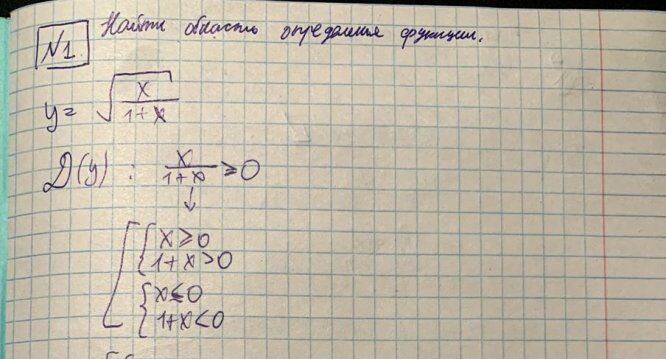 N1. Найти область определения функции.
y = √(x/(1+x))
D(y) : x/(1+x) ≥ 0
↓
[ { x ≥ 0
{ 1+x > 0
{ x ≤ 0
{ 1+x < 0